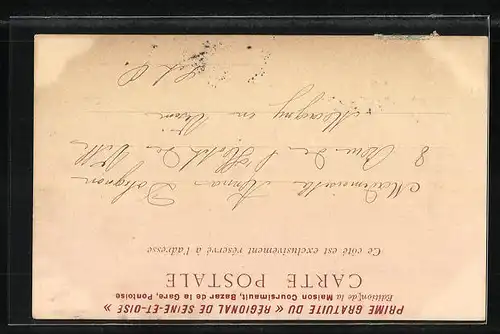 PRIME GRATUITE DU « RÉGIONAL DE SEINE-ET-OISE »
Edition de la Maison Coursimault, Bazar de la Gare, Pontoise
CARTE POSTALE
Ce côté est exclusivement réservé à l'adresse
Mademoiselle Anna
8 Rue de l'Hôtel de Ville
Magny en Vexin
S et O